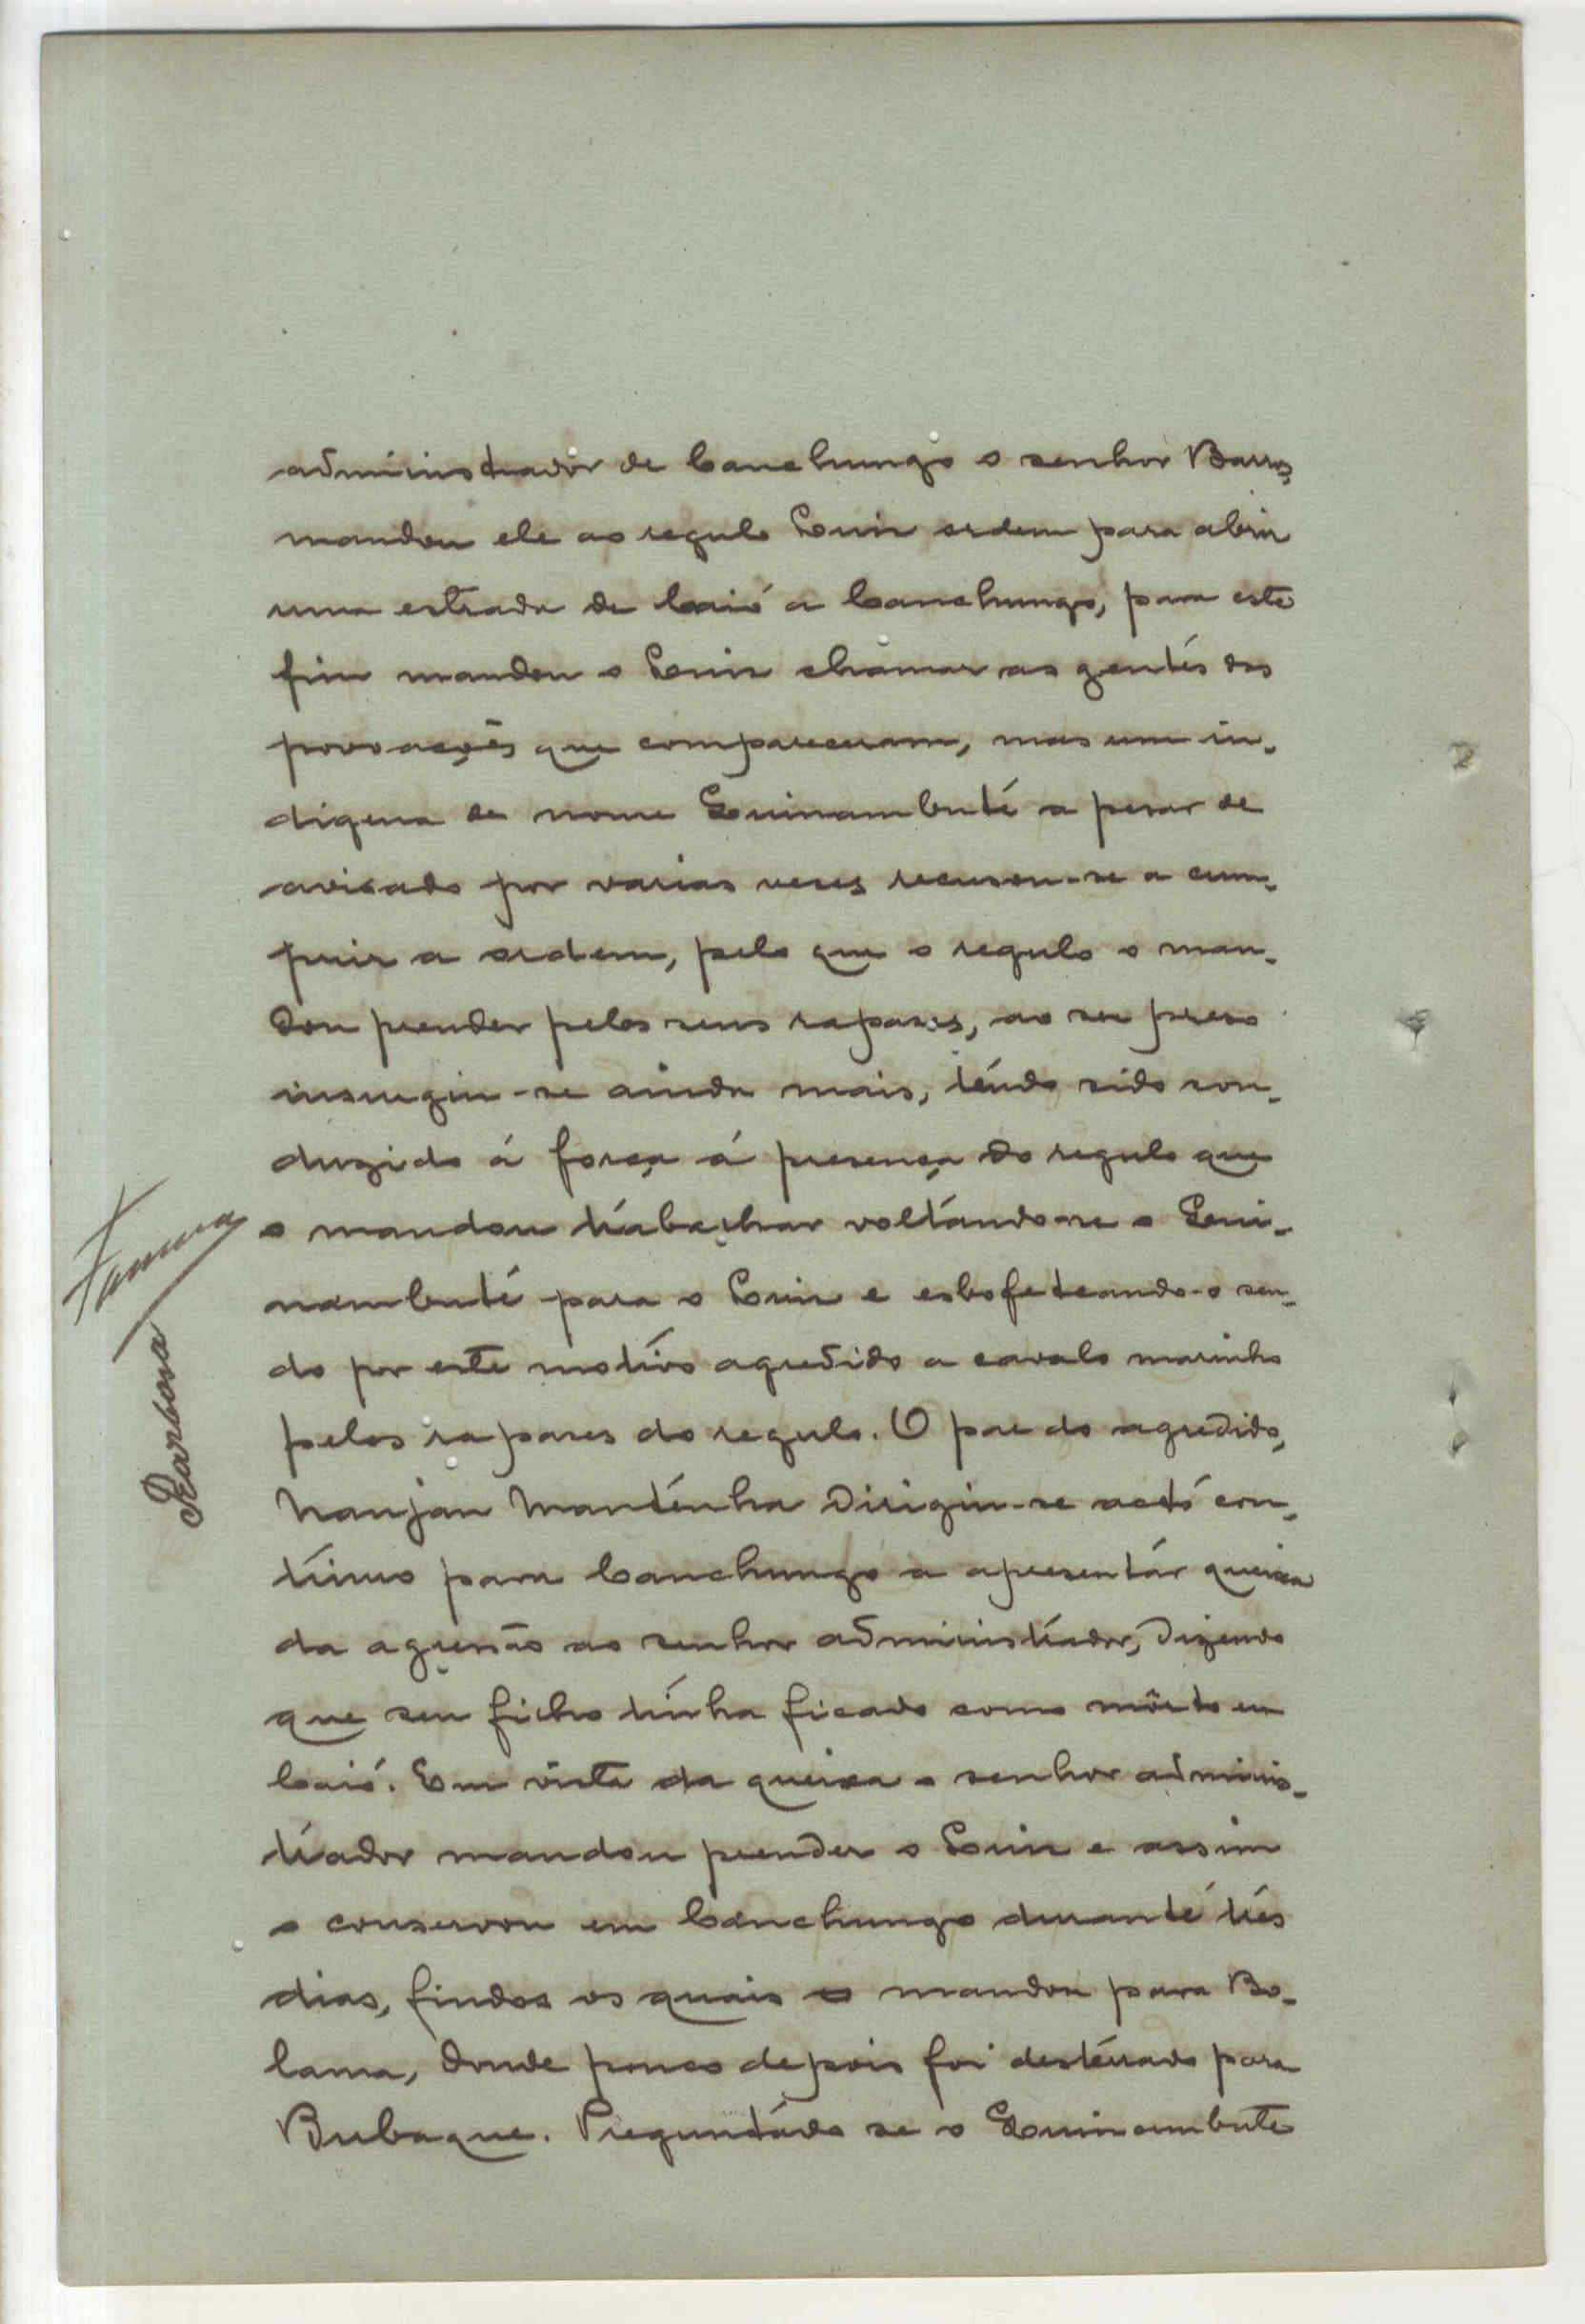 administrador de Canchungo o senhor Barros,
mandou ele ao regulo Luiz ordem para abrir
uma estrada de Caió a Canchungo, para este
fim mandou o Luiz chamar as gentes das
povoações que compareceram, mas um in-
digena de nome Quinambuté a pesar de
avisado por varias veses recusou-se a cum-
prir a ordem, pelo que o regulo o man-
dou prender pelos seus rapases, ao ser preso
insurgiu-se ainda mais, tendo sido con-
duzido á força á presença do regulo que
o mandou trabalhar voltando-se o Qui-
nambuté para o Luiz e esbofeteando-o sen-
do por este motivo agredido a cavalo marinho
pelos rapases do regulo. O pae do agredido,
Naujan Mantenha dirigiu-se acto con-
tinuo para Canchungo a apresentar queixa
da agressão ao senhor administrador, dizendo
que seu filho tinha ficado como morto em
Caió. Em vista da queixa o senhor adminis-
trador mandou prender o Luiz e assim
o conservou em Canchungo durante três
dias, findos os quais o mandou para Bo-
lama, donde pouco depois foi desterrado para
Bubaque. Preguntádo se o Quinambute
Barbosa